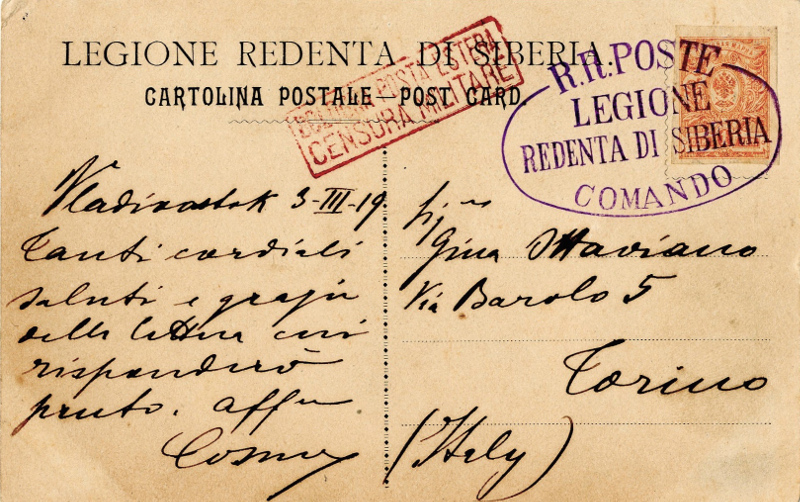 LEGIONE REDENTA DI SIBERIA.
CARTOLINA POSTALE — POST CARD.
BOLOGNA POSTA ESTERA
CENSURA MILITARE
R.R. POSTE
LEGIONE
REDENTA DI SIBERIA
COMANDO
Vladivostok 3-III-19
Tanti cordiali
saluti e grazie
della lettera cui
risponderò
presto. Aff
Gina Ottaviano
Via Barolo 5
Torino
(Italy)